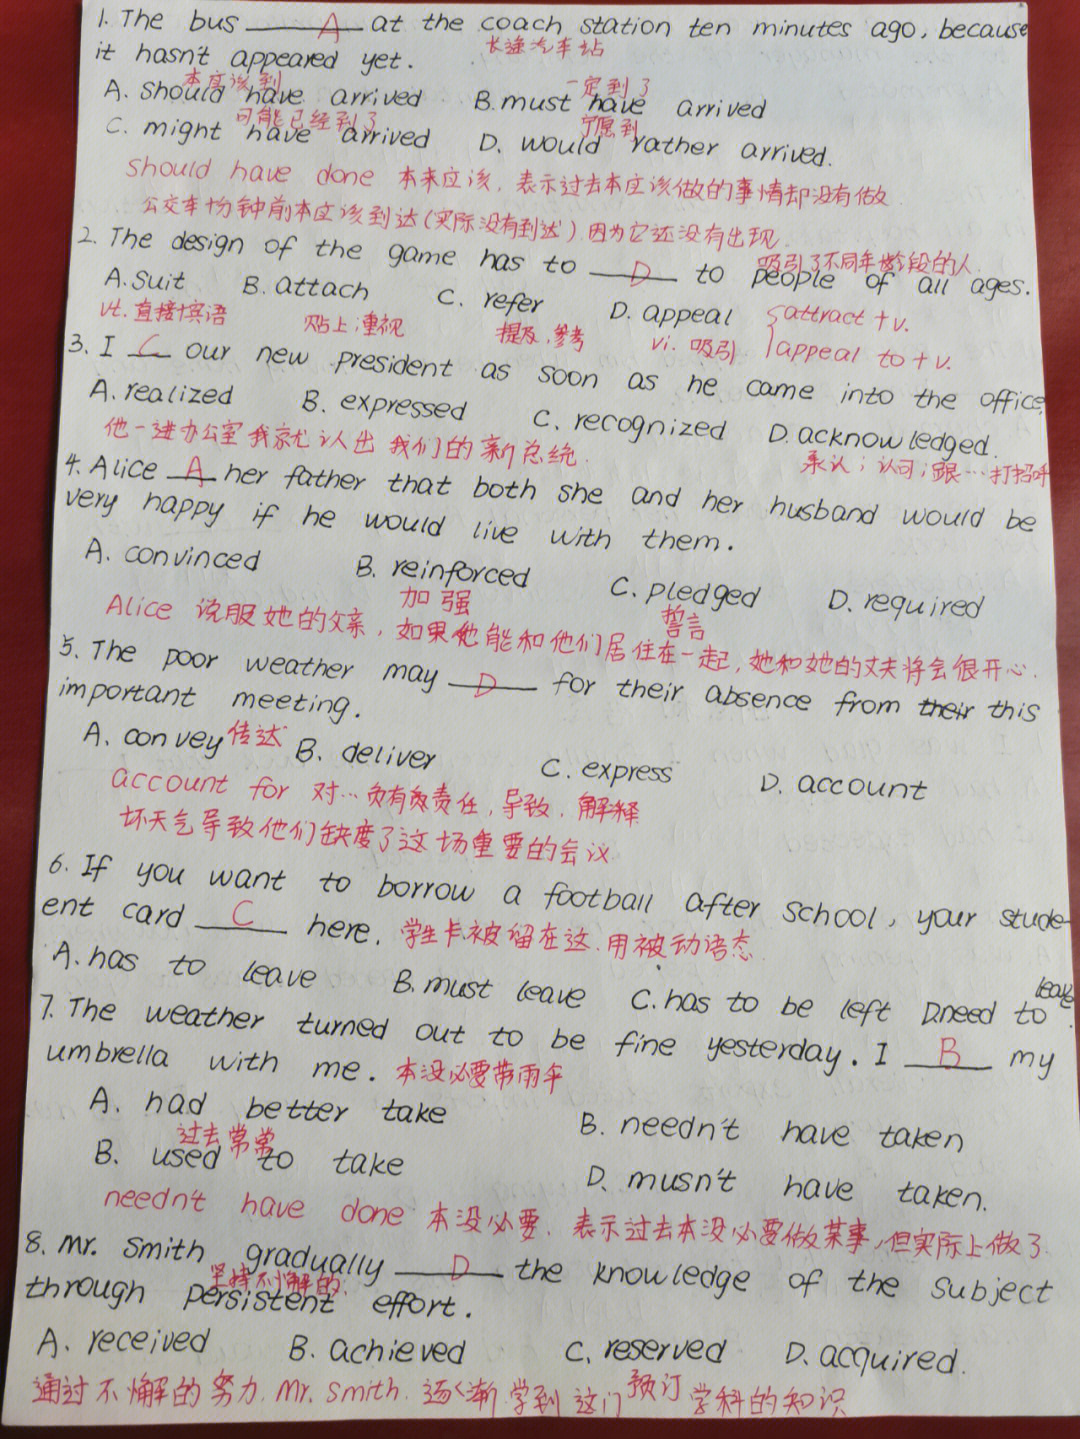 1. The bus A at the coach station ten minutes ago, because
长途汽车站
it hasn't appeared yet.
本应该到 一定到了
A. should have arrived B. must have arrived
可能已经到了 宁愿到
C. might have arrived D. would rather arrived.
should have done 本来应该, 表示过去本应该做的事情却没有做
公交车十分钟前本应该到达(实际没有到达)因为它还没有出现.
2. The design of the game has to D to people of all ages.
吸引了不同年龄段的人.
A. suit B. attach C. refer D. appeal {attract + v.
vt. 直接+宾语 贴上;重视 提及, 参考 vi. 吸引 appeal to + v.
3. I C our new president as soon as he came into the office.
A. realized B. expressed C. recognized D. acknowledged.
他一进办公室我就认出我们的新总统. 承认;认可;跟…打招呼
4. Alice A her father that both she and her husband would be
very happy if he would live with them.
A. convinced B. reinforced C. pledged D. required
加强 誓言
Alice 说服她的父亲, 如果他能和他们居住在一起, 她和她的丈夫将会很开心.
5. The poor weather may D for their absence from their this
important meeting.
A. convey 传达 B. deliver C. express D. account
account for 对…负有负责任, 导致, 解释
坏天气导致他们缺席了这场重要的会议
6. If you want to borrow a football after school, your stude-
ent card C here. 学生卡被留在这.用被动语态
A. has to leave B. must leave C. has to be left D. need to leave.
7. The weather turned out to be fine yesterday. I B my
umbrella with me. 本没必要带雨伞
A. had better take B. needn't have taken
过去常常
B. used to take D. musn't have taken.
needn't have done 本没必要, 表示过去本没必要做某事, 但实际上做了.
8. Mr. Smith gradually D the knowledge of the subject
坚持不懈的.
through persistent effort.
A. received B. achieved C. reserved D. acquired.
预订
通过不懈的努力. Mr. Smith. 逐渐学到这门学科的知识